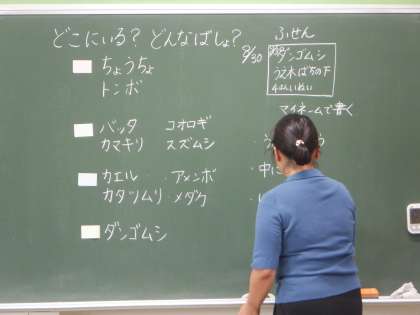 どこにいる？どんなばしょ？
ちょうちょ
トンボ
バッタ　コオロギ
カマキリ　スズムシ
カエル　・アメンボ
カタツムリ　メダカ
ダンゴムシ
ふせん
9/30
ダンゴムシ
うえ木ばちの下
マイネームで書く
・中に